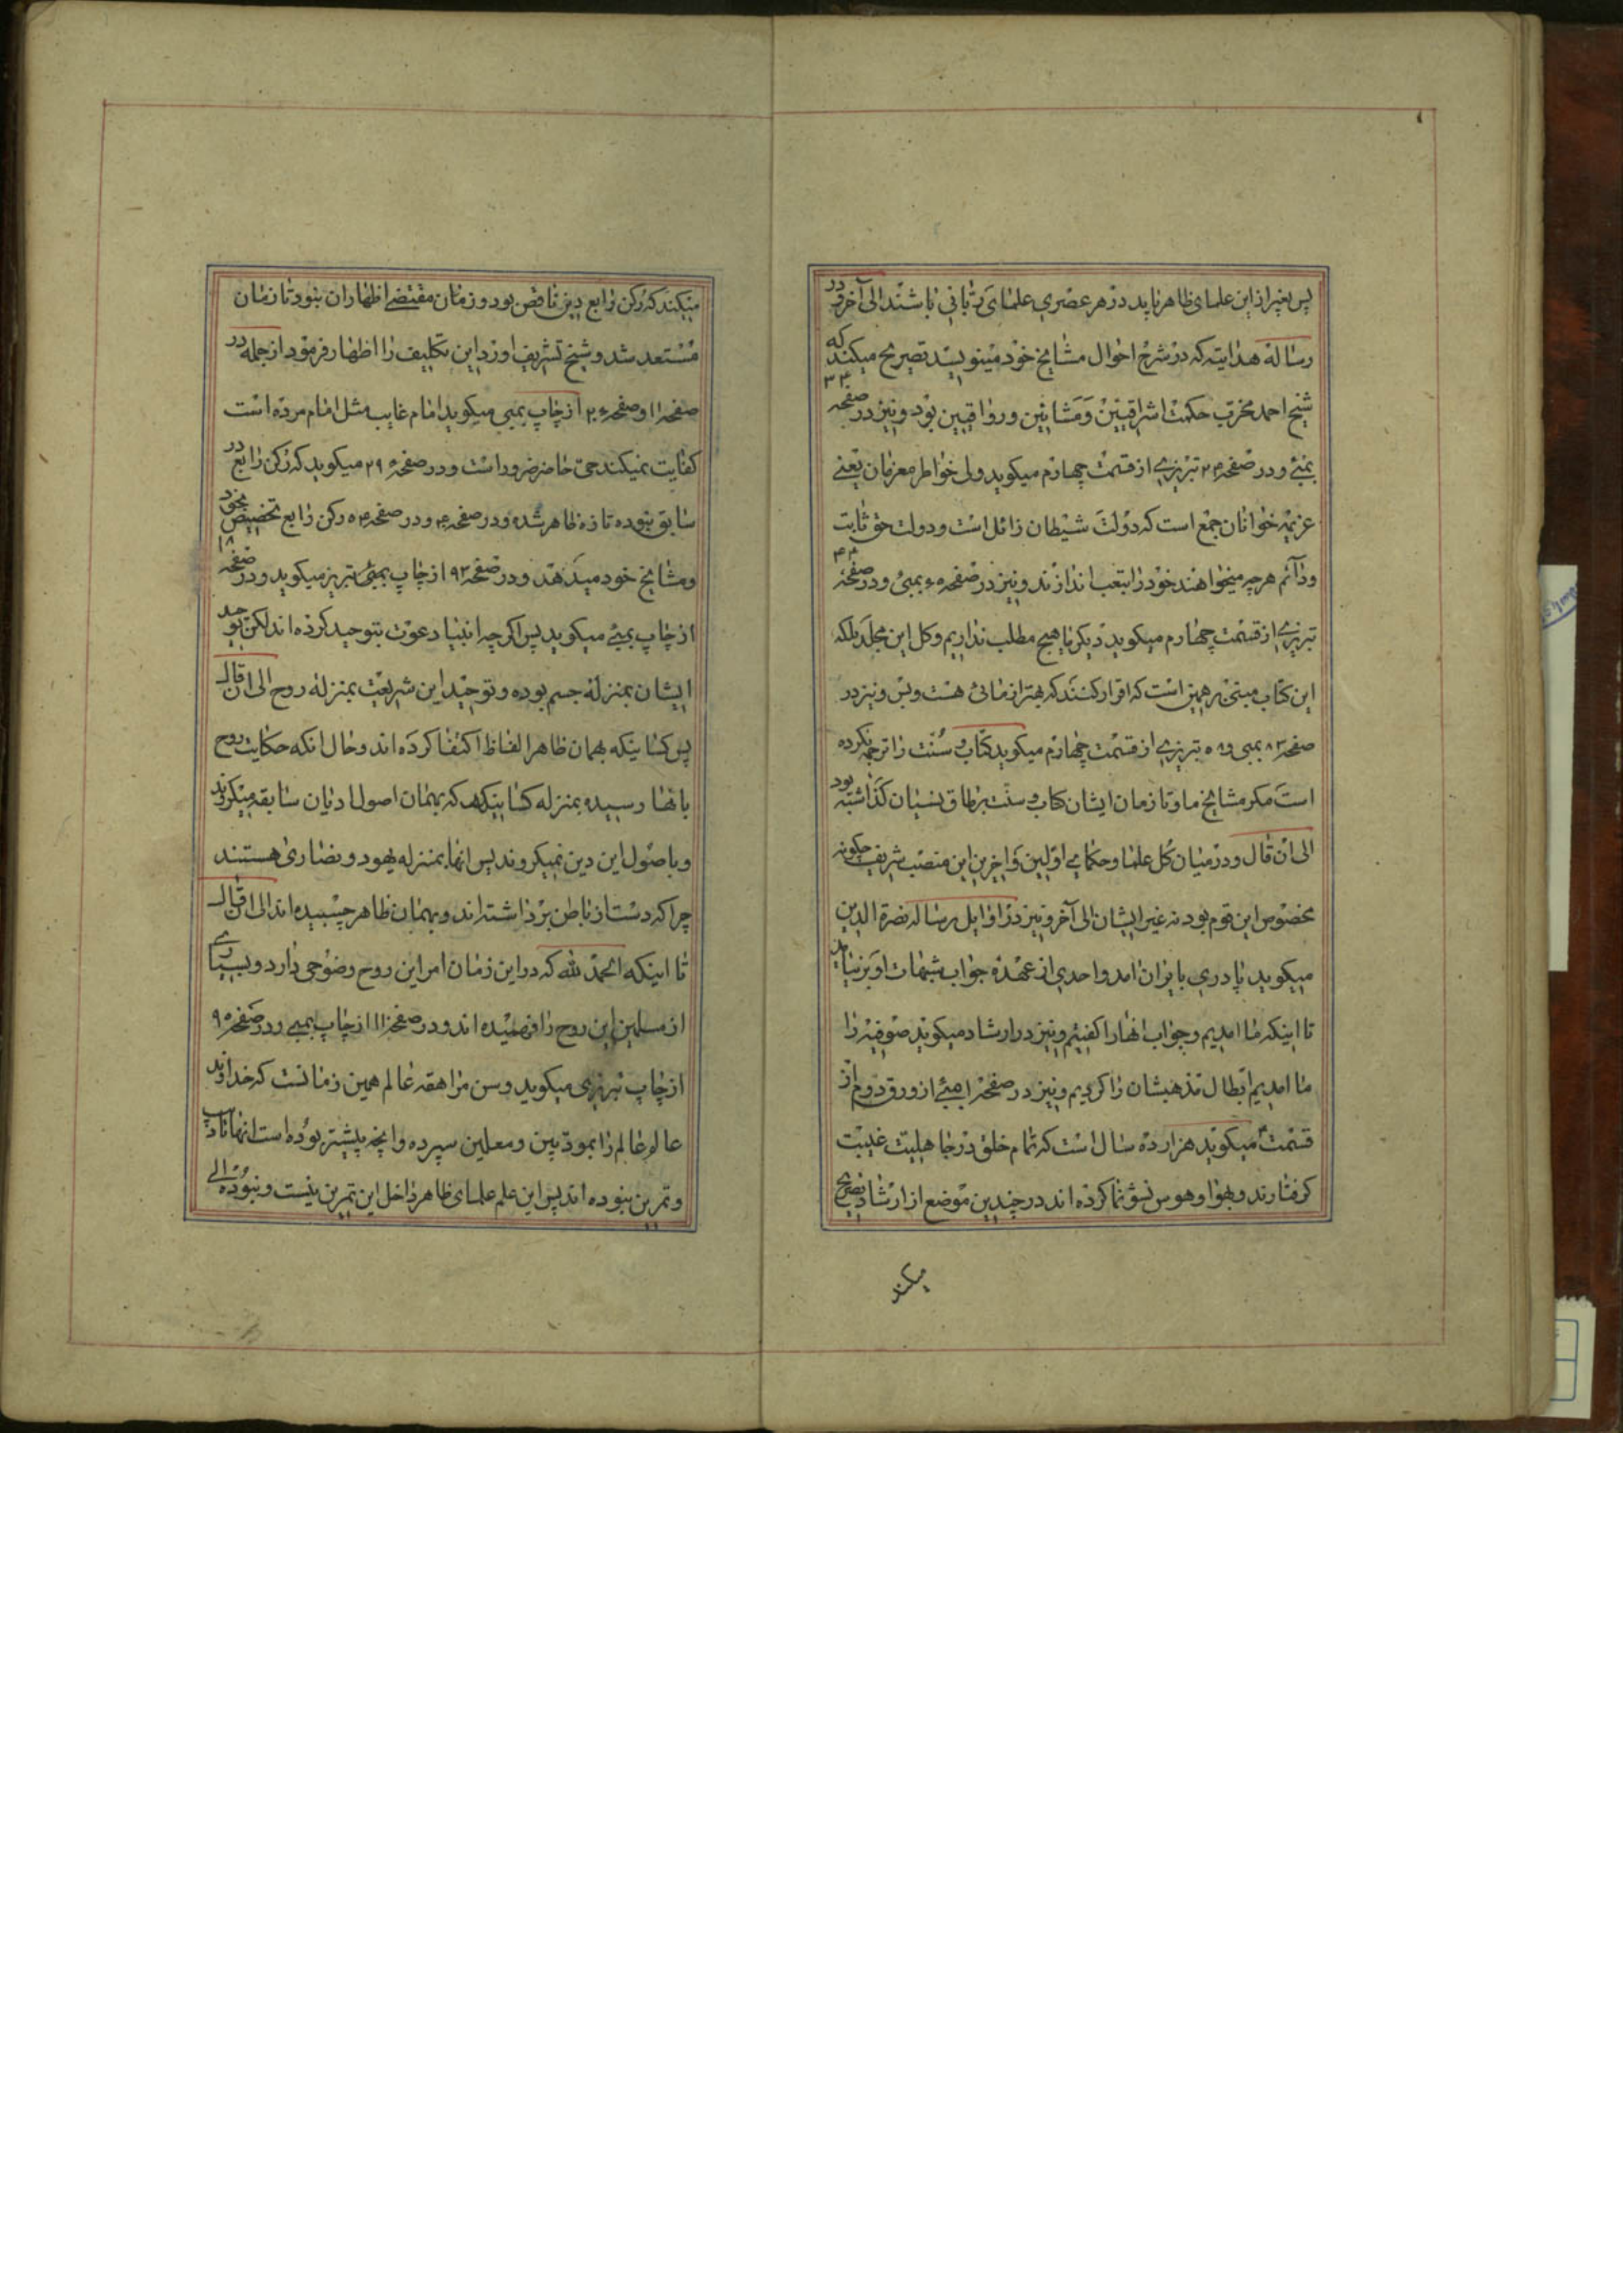 پس بغیر از این علمای ظاهر باید در هر عصری علمای ربانی باشند الی آخر و در
رساله هدایته که در شرح احوال مشایخ خود مینویسد تصریح میکند که
شیخ احمد مخرب حکمت اشراقیین و مشایین و رواقیین بود و نیز در صفحه ۳۳
بمبئی و در صفحه ۲۴ تبریزی از قسمت چهارم میکوید ولی خواطر معزمان یعنی
عزیمه خوانان جمع است که دولت شیطان زائل است و دولت حق ثابت
و دائم هر چه میخواهند خود را بتعب اندازند و نیز در صفحه ۶۰ بمبئی و در صفحه ۴۴
تبریزی از قسمت چهارم میکوید دیکر با هیچ مطلب نداریم و کل این مجلد بلکه
این کتاب مبتنی بر همین است که اقرار کنند که بهتر از مائی هست و بس و نیز در
صفحه ۸۳ بمبی و ۵۸ تبریزی از قسمت چهارم میکوید کتاب و سنت را ترجمه نکرده
است مکر مشایخ ما و تا زمان ایشان کتاب و سنت بر طاق نسیان کذاشته بود
الی ان قال و در میان کل علما و حکمای اولین و اخرین این منصب شریف چکونه
مخصوص این قوم بود نه غیر ایشان الی آخر و نیز در اوایل رساله نصرة الدین
میکوید پادری بایران امد و احدی از عهده جواب شبهات او بر نیامد
تا اینکه ما امدیم و جواب انها را کفتیم و نیز در ارشاد میکوید صوفیه را
ما امدیم ابطال مذهبشان را کردیم و نیز در صفحه ۱ بمبئی از ورق دوم از
قسمت ۴ میکوید هزار ده سال است که تمام خلق در جاهلیت غیبت
کرفتارند و بهوا و هوس نشو نما کرده اند در چندین موضع از ارشاد تصریح
میکند
میکند که رکن رابع دین ناقص بود و زمان مقتضی اظهار ان نبود تا زمان
مستعد شد و شیخ تشریف اورد این تکلیف را اظهار فرمود از جمله در
صفحه ۱۱ و صفحه ۲۰ از چاپ بمبی میکوید امام غایب مثل امام مرده است
کفایت نمیکند حی حاضر ضرور است و در صفحه ۲۹ میکوید که رکن رابع در
سابق نبوده تازه ظاهر شده و در صفحه ۴ و در صفحه ۵۴ رکن رابع تخصیص بخود
و مشایخ خود میدهد و در صفحه ۹۲ از چاپ بمبئی تبریز میکوید و در صفحه ۱۸
از چاپ بمبئی میکوید پس اکر چه انبیا دعوت بتوحید کرده اند لکن توحید
ایشان بمنزله جسم بوده و توحید این شریعت بمنزله روح الی ان قال
پس کسانیکه بهمان ظاهر الفاظ اکتفا کرده اند و حال انکه حکایت روح
بانها رسیده بمنزله کسانیکه که بهمان اصول ادیان سابقه میکروند
و باصول این دین نمیکروند پس انها بمنزله یهود و نصاری هستند
چرا که دست از باطن برداشته اند و بهمان ظاهر چسبیده اند الی ان قال
تا اینکه الحمد لله که در این زمان امر این روح وضوحی دارد و بسیاری
از مسلمین این روح را فهمیده اند و در صفحه ۱۱ از چاپ بمبی و در صفحه ۹۵
از چاپ تبریزی میکوید و سن مراهقه عالم همین زمانست که خداوند
عالم عالم را بمودبین و معلمین سپرده و انچه پیشتر بوده است انها تادیب
و تمرین نبوده اند پس این علم علمای ظاهر داخل این تمرین نیست و نبوده الی